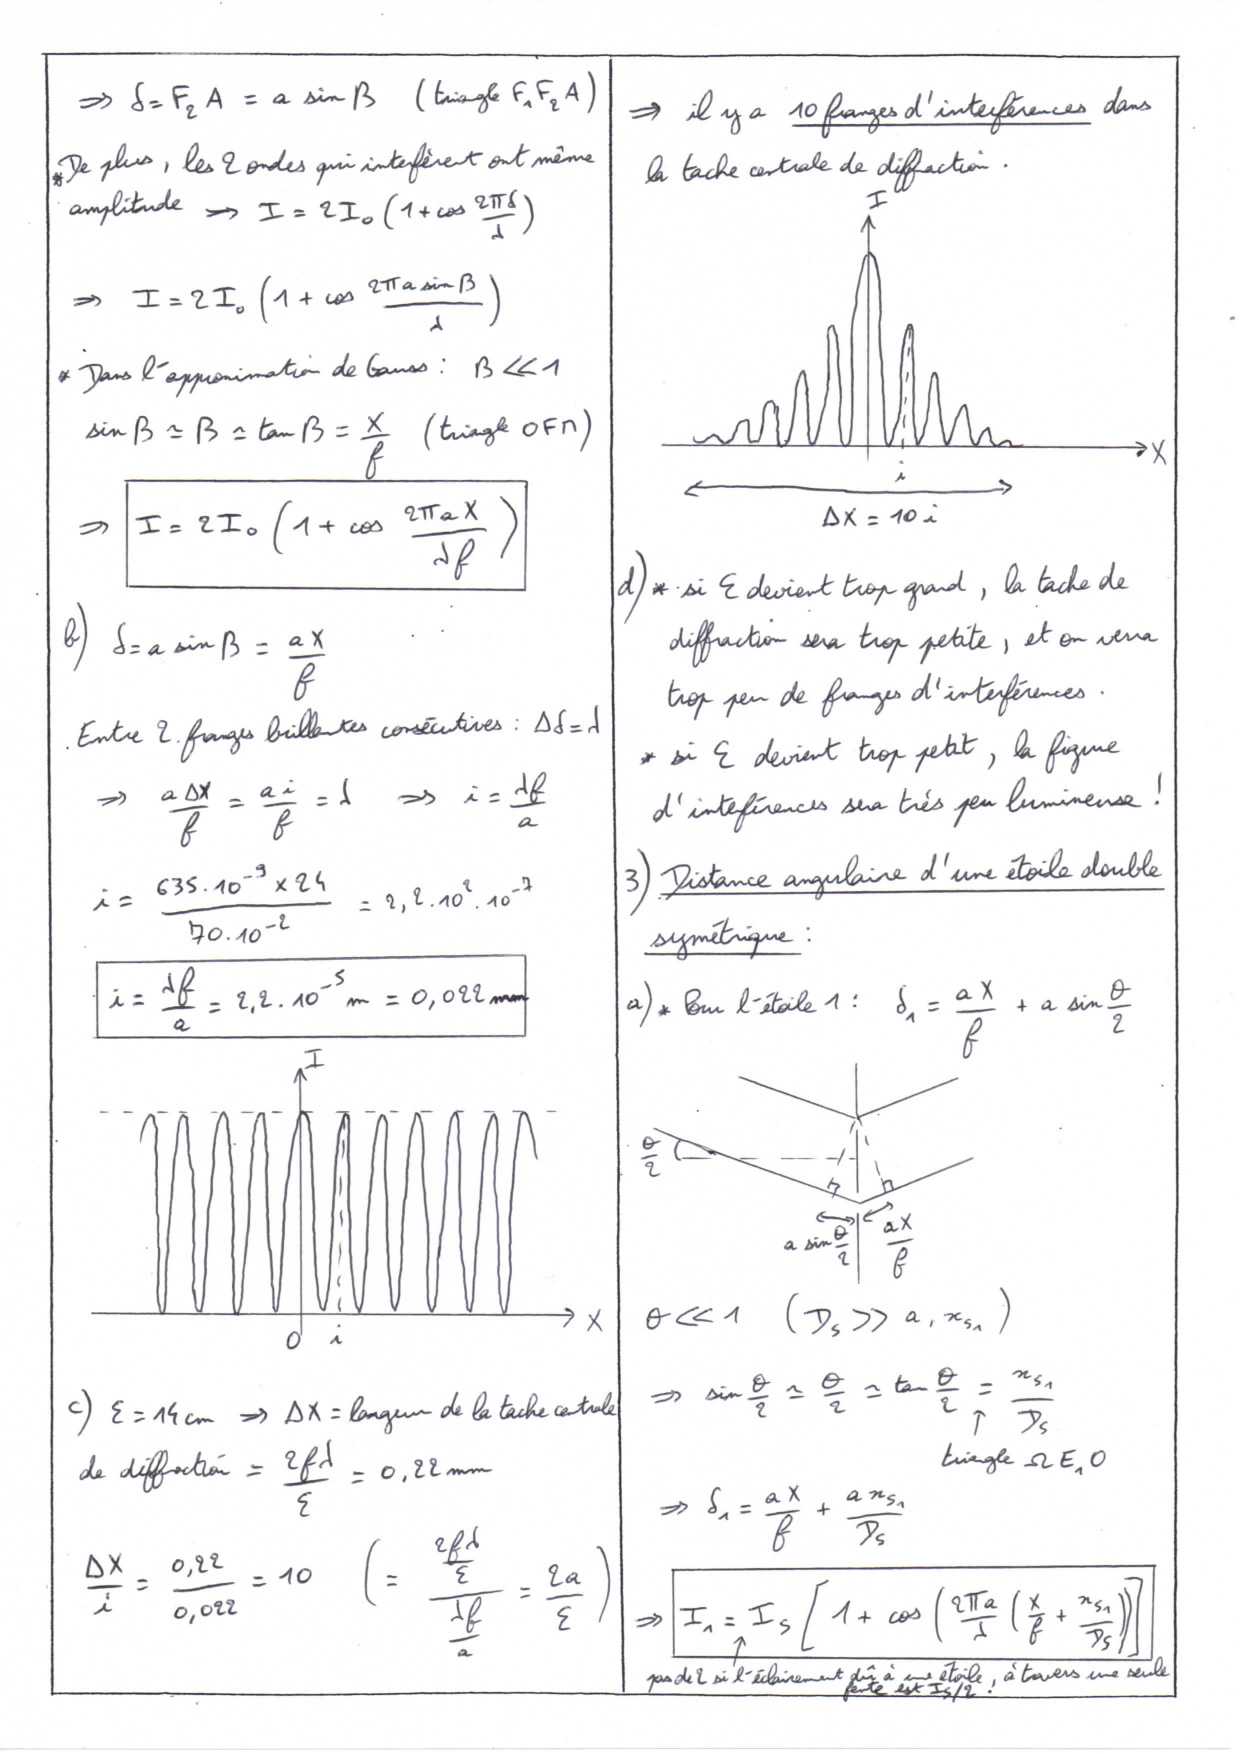 ⇒ δ = F₂A = a sin β (triangle F₁F₂A)
* De plus, les 2 ondes qui interfèrent ont même
amplitude ⇒ I = 2I₀ (1 + cos 2πδ/λ)
⇒ I = 2I₀ (1 + cos 2πa sin β/λ)
* Dans l'approximation de Gauss : β << 1
sin β ≃ β ≃ tan β = X/f (triangle OFM)
⇒ I = 2I₀ (1 + cos 2πaX/λf)
b) δ = a sin β = aX/f
Entre 2 franges brillantes consécutives : Δδ = λ
⇒ aΔX/f = ai/f = λ ⇒ i = λf/a
i = 635.10⁻⁹ × 24/70.10⁻² = 2,2.10².10⁻⁷
i = λf/a = 2,2.10⁻⁵ m = 0,022 mm
I
X
O i
c) ε = 14 cm ⇒ ΔX = largeur de la tache centrale
de diffraction = 2fλ/ε = 0,22 mm
ΔX/i = 0,22/0,022 = 10 (= (2fλ/ε)/(λf/a) = 2a/ε)
⇒ il y a 10 franges d'interférences dans
la tache centrale de diffraction.
I
X
i
ΔX = 10 i
d) * si ε devient trop grand, la tache de
diffraction sera trop petite, et on verra
trop peu de franges d'interférences.
* si ε devient trop petit, la figure
d'inteférences sera très peu lumineuse !
3) Distance angulaire d'une étoile double
symétrique :
a) * Pour l'étoile 1 : δ₁ = aX/f + a sin θ/2
θ/2
a sin θ/2 aX/f
θ << 1 (Dₛ >> a, xₛ₁)
⇒ sin θ/2 ≃ θ/2 ≃ tan θ/2 = xₛ₁/Dₛ
↑
triangle ΩE₁O
⇒ δ₁ = aX/f + a xₛ₁/Dₛ
⇒ I₁ = Iₛ [1 + cos (2πa/λ (X/f + xₛ₁/Dₛ))]
↑
pas de 2 si l'éclairement dû à une étoile, à travers une seule
fente est Iₛ/2 !